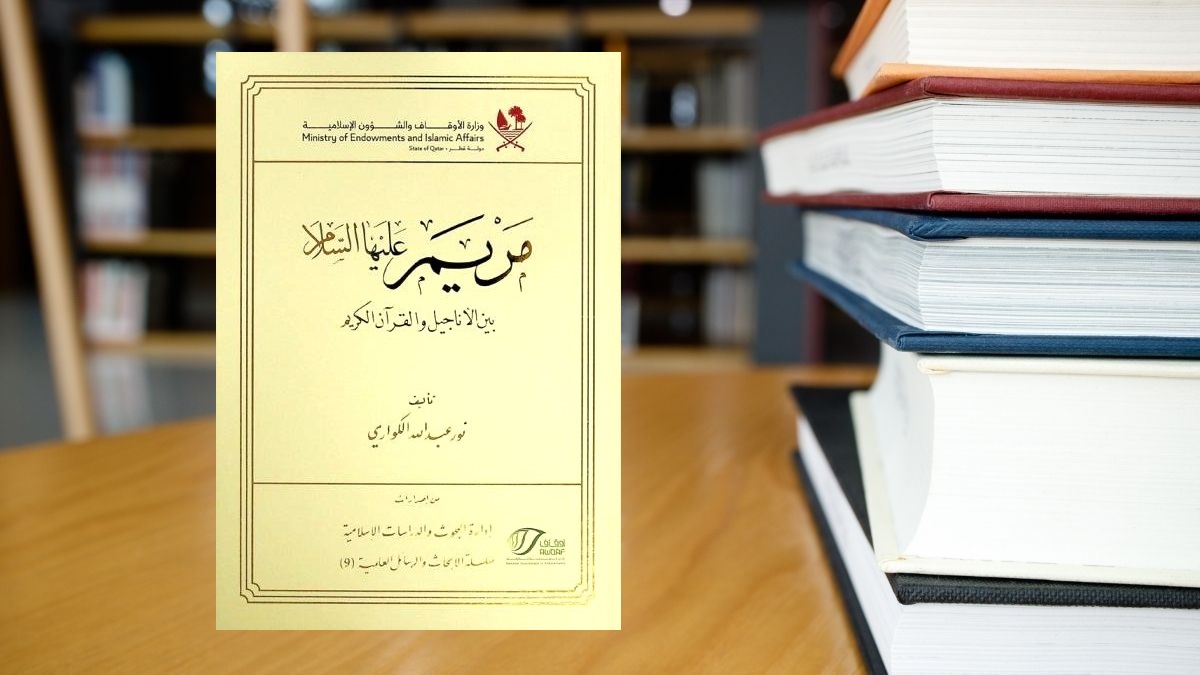 وزارة الأوقاف والشؤون الإسلامية
Ministry of Endowments and Islamic Affairs
State of Qatar • دولة قطر
مريم عليها السلام
بين الأناجيل والقرآن الكريم
تأليف
نور عبد الله الكواري
من إصدارات
إدارة البحوث والدراسات الإسلامية
سلسلة الأبحاث والرسائل العلمية (9)
أوقاف
AWQAF